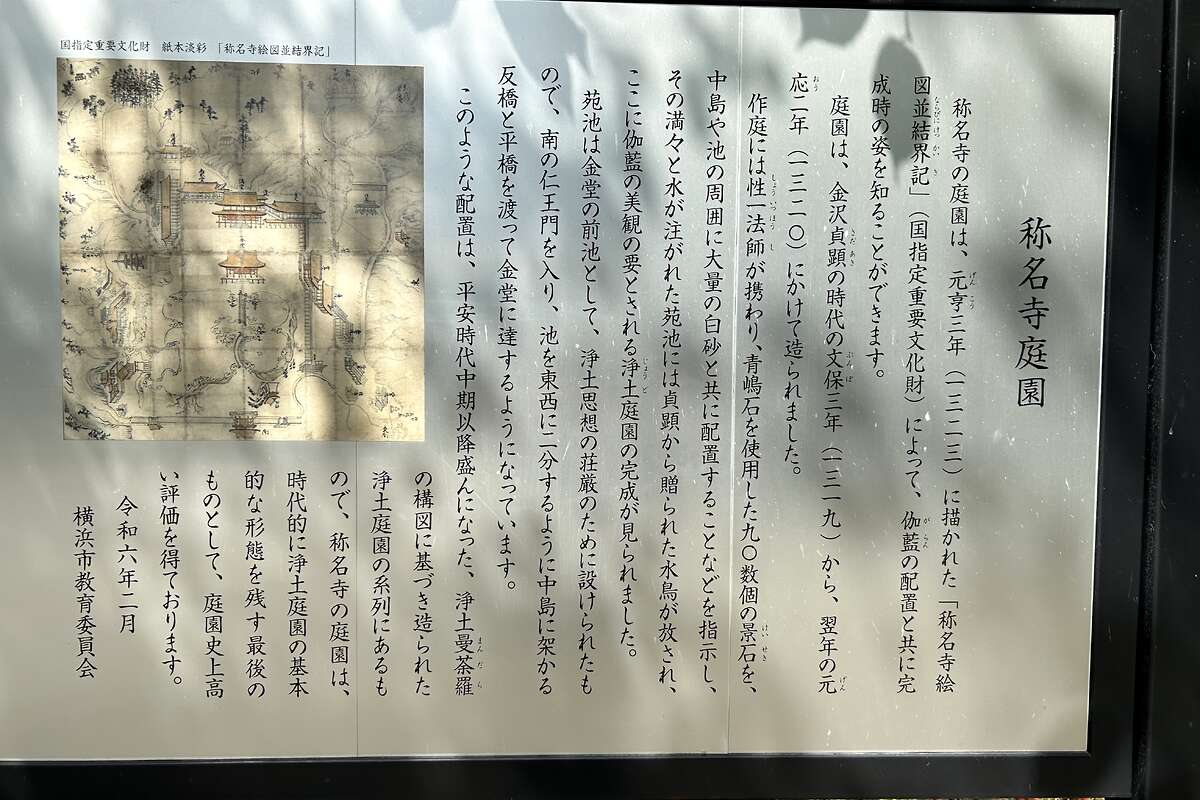 称名寺庭園
称名寺の庭園は、元亨三年（一三二三）に描かれた「称名寺絵
図並結界記」（国指定重要文化財）によって、伽藍の配置と共に完
成時の姿を知ることができます。
庭園は、金沢貞顕の時代の文保三年（一三一九）から、翌年の元
応二年（一三二〇）にかけて造られました。
作庭には性一法師が携わり、青嶋石を使用した九〇数個の景石を、
中島や池の周囲に大量の白砂と共に配置することなどを指示し、
その満々と水が注がれた苑池には貞顕から贈られた水鳥が放され、
ここに伽藍の美観の要とされる浄土庭園の完成が見られました。
苑池は金堂の前池として、浄土思想の荘厳のために設けられたも
ので、南の仁王門を入り、池を東西に二分するように中島に架かる
反橋と平橋を渡って金堂に達するようになっています。
このような配置は、平安時代中期以降盛んになった、浄土曼荼羅
の構図に基づき造られた
浄土庭園の系列にあるも
ので、称名寺の庭園は、
時代的に浄土庭園の基本
的な形態を残す最後の
ものとして、庭園史上高
い評価を得ております。
令和六年二月
横浜市教育委員会
国指定重要文化財　紙本淡彩　「称名寺絵図並結界記」